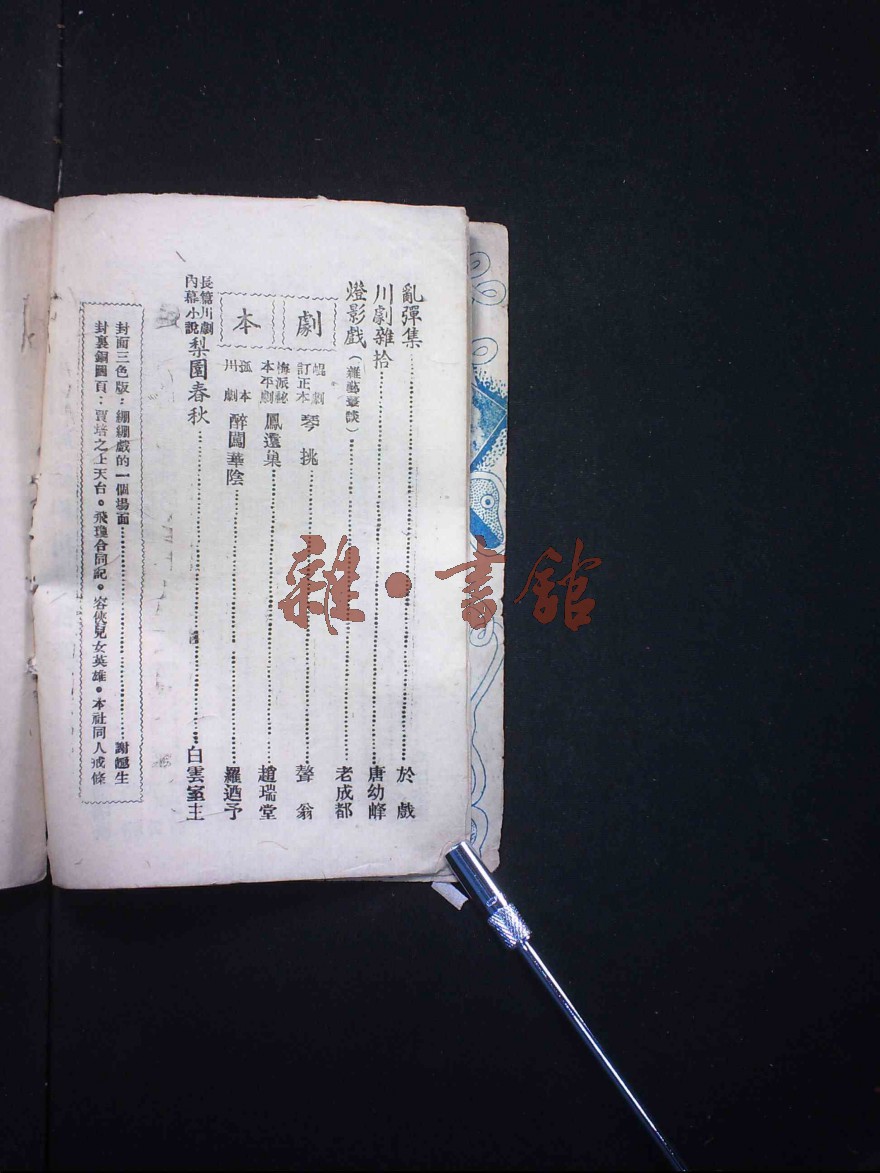 亂彈集⋯⋯於戲
川劇雜拾⋯⋯唐幼峰
燈影戲(雜藝叢談)⋯⋯老成都
劇本
崑劇訂正本 琴挑⋯⋯聲翁
梅派秘本平劇 鳳還巢⋯⋯趙瑞堂
孤本川劇 醉闖華陰⋯⋯羅迺予
長篇川劇內幕小說 梨園春秋⋯⋯白雲室主
封面三色版:綳綳戲的一個場面⋯⋯謝趣生
封裏銅圖頁:賈培之上天台。飛瓊合同記。容俠兒女英雄。本社同人戒條
雜·書館